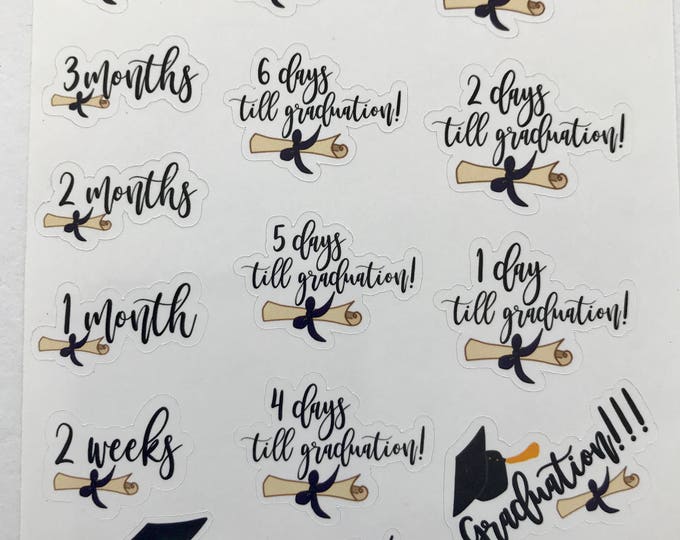 3 months
2 months
1 month
2 weeks
6 days
till graduation!
5 days
till graduation!
4 days
till graduation!
2 days
till graduation!
1 day
till graduation!
Graduation!!!